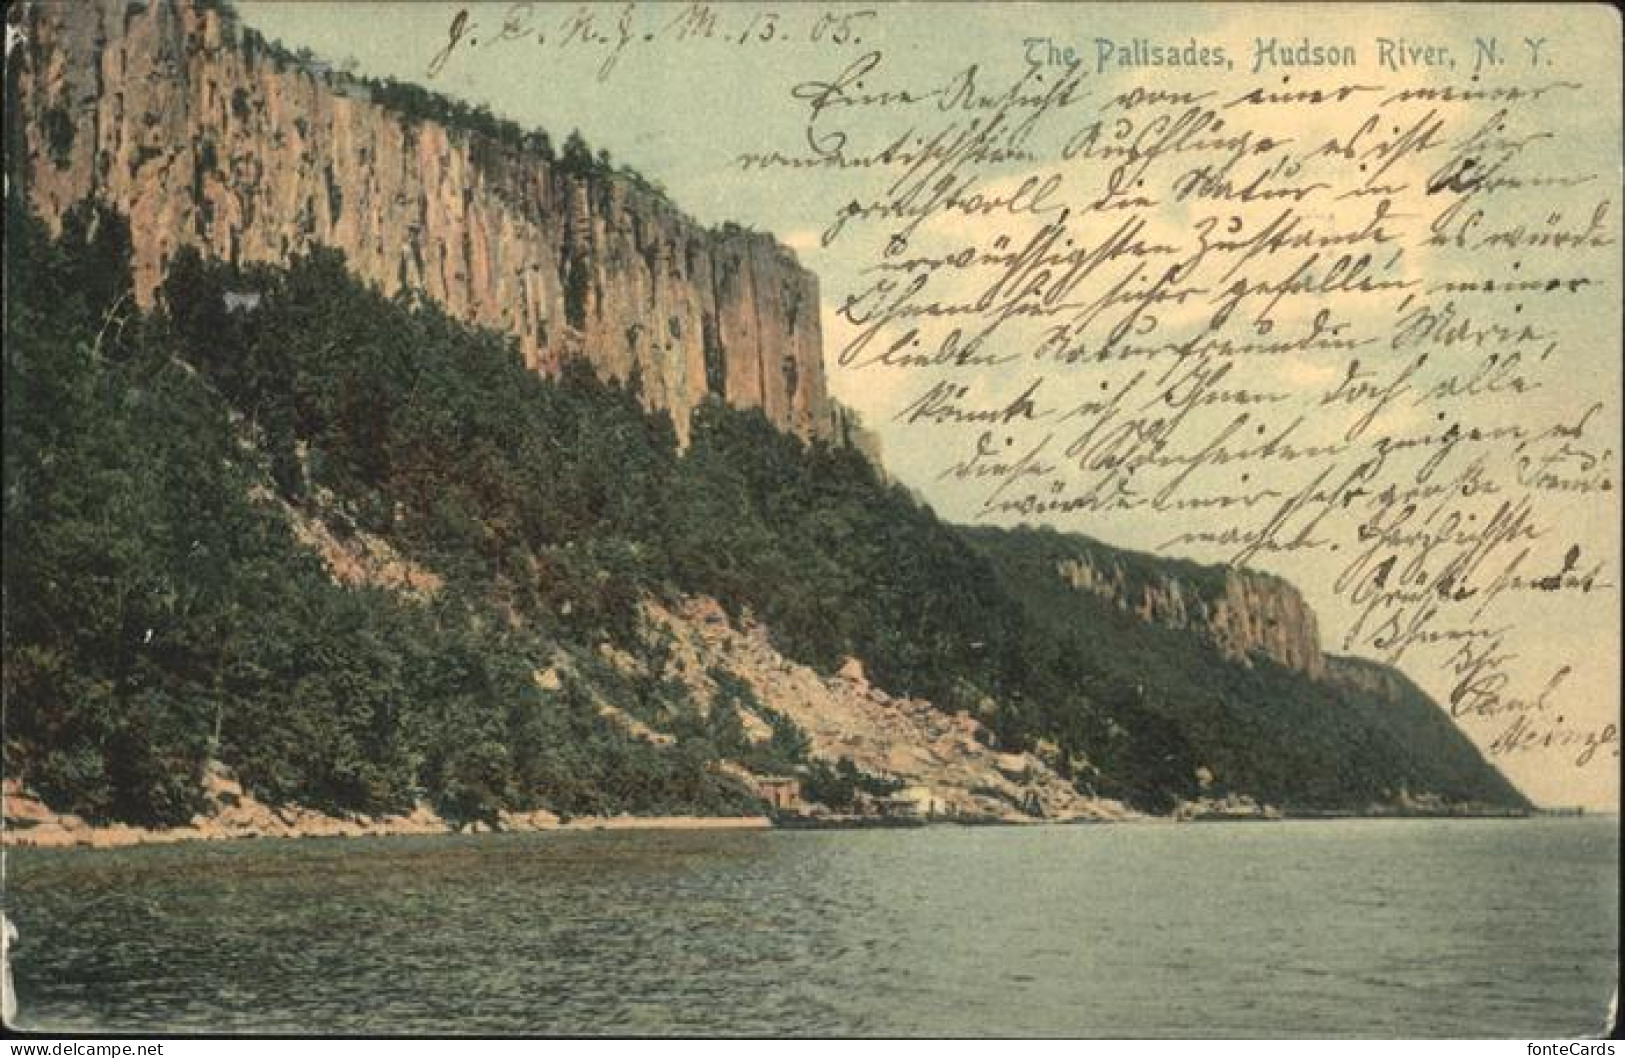 J. C. N. J. M. 13. 05.
The Palisades, Hudson River, N. Y.
Eine Ansicht von einer meiner
romantischsten Ausflüge, es ist hier
prachtvoll, die Natur in Ihrem
urwüchsigsten Zustande, es würde
Ihnen hier sicher gefallen, meiner
lieben Naturfreundin Marie,
könnte ich Ihnen doch alle
diese Schönheiten zeigen, es
würde mir sehr große Freude
machen. Herzlichste
Grüße sendet
Ihnen
Ihr
Paul
Heinze
fonteCards